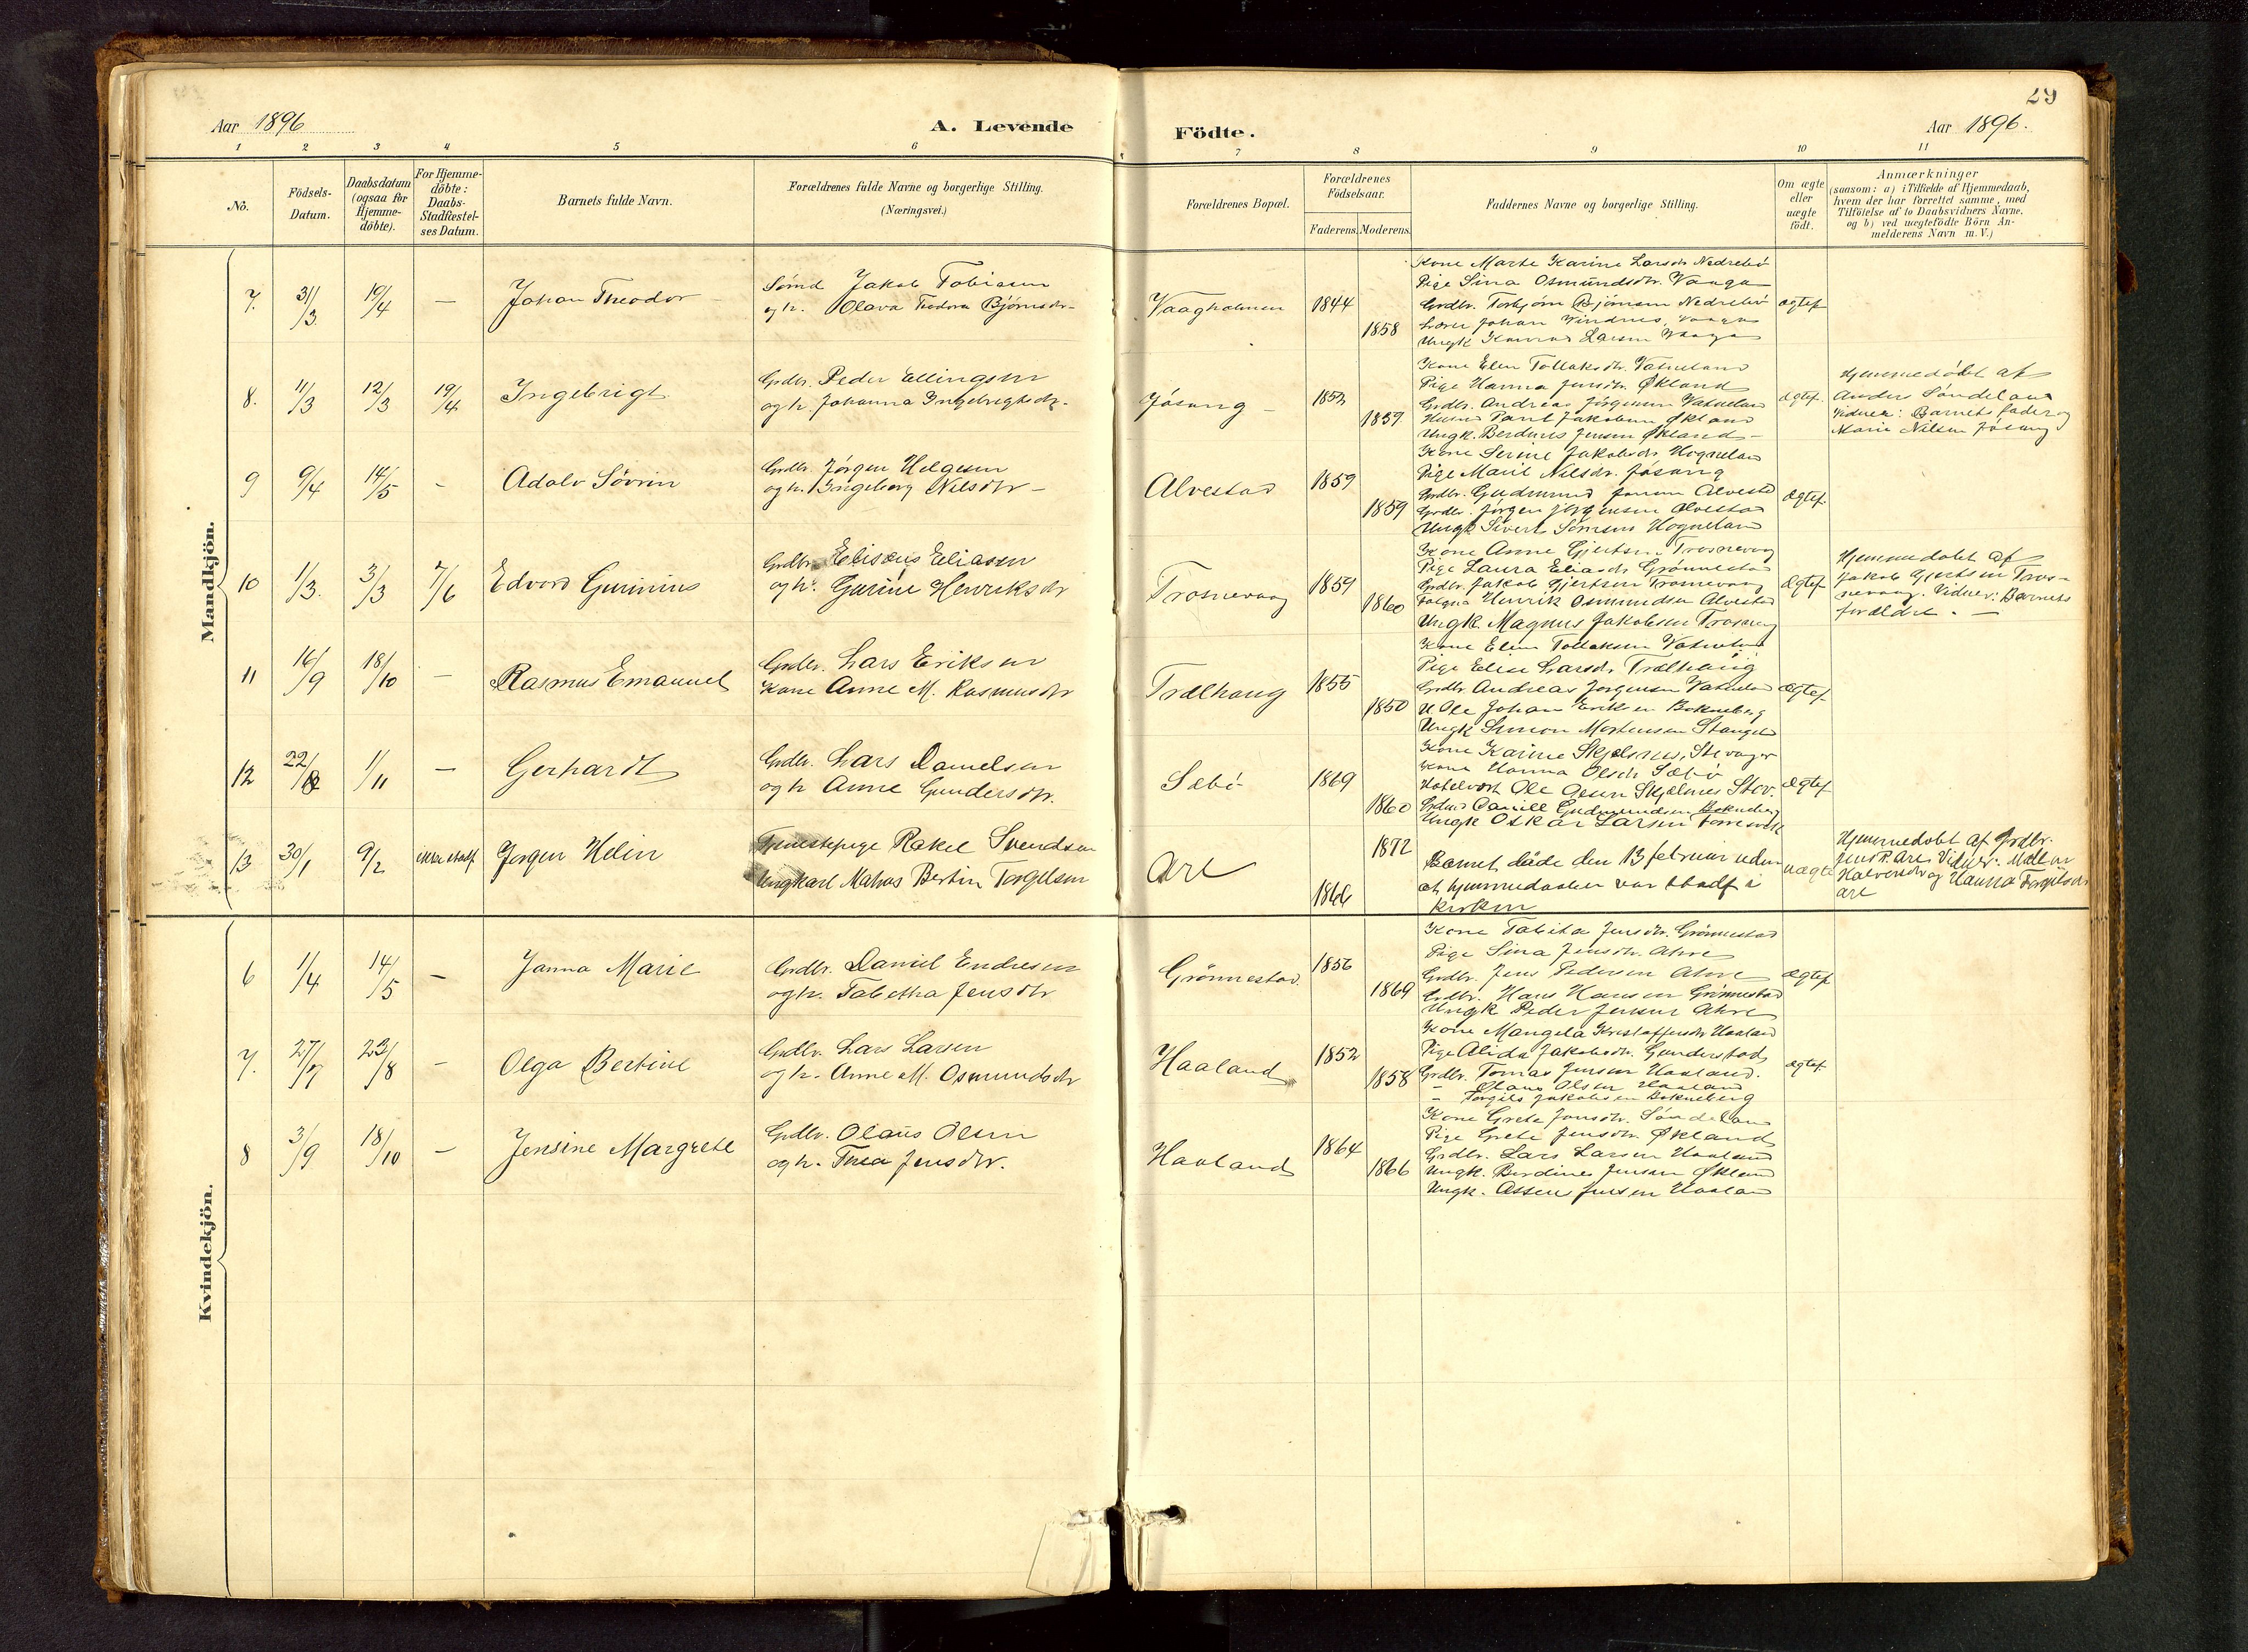 29
Aar 1896
A. Levende
Födte.
Aar 1896.
1 2 3 4 5 6 7 8 9 10 11
No.
Födsels-Datum.
Daabsdatum (ogsaa for Hjemme-döbte).
For Hjemme-döbte: Daabs-Stadfæstel-ses Datum.
Barnets fulde Navn.
Forældrenes fulde Navne og borgerlige Stilling.
(Næringsvei.)
Forældrenes Bopæl.
Forældrenes Födselsaar.
Faderens. Moderens.
Faddernes Navne og borgerlige Stilling.
Om ægte eller uægte födt.
Anmærkninger
(saasom: a) i Tilfælde af Hjemmedaab,
hvem der har forrettet samme, med
Tilföielse af to Daabsvidners Navne,
og b) ved uægtefödte Börn An-
melderens Navn m. V.)
Mandkjön.
7. 31/3. 19/4 — Johan Theodor
Jakob Tobiasen
og h. Olava Teodora Bjørnsdr
Vaagholmen 1844 1858
Kone Marte Karine Larsdr Nedrebö
Pige Sina Osmundsdr. Vaaga
Grdbr. Torbjörn Bjørnsen Nedrebö
Johan Vindnes, Vaaga
Ungk Konrad Larsen Vaaga
ægtef
8. 11/3 12/3 19/4 Ingebrigt
Grdbr. Peder Ellingsen
og h. Johanna Ingebrigtsdr.
Jösang 1853 1859.
Kone Elen Tollaksdr. Vatneland
Pige Hanna Jensdr. Økland
Grdbr. Andreas Jörgensen Vatneland
Jakobsen Økland
Ungk. Berdines Jensen Økland
ægtef.
Hjemmedöbt af
Anders Söndeland
Vidner: Barnets fader og
Marie Nilsen Jösang
9 9/4 14/5 - Adolv Sövrin
Grdbr. Jörgen Helgesen
og h. Ingeborg Nilsdtr
Alvestad 1859 1859
Kone Serine Jakobsdr Hogneland
Pige Marie Nilsdr. Jösang
Grdbr. Gudmund Alvestad
Grdbr. Jörgen Jörgensen Alvestad
Ungk Sivert Simonsen Hogneland
ægtef.
10 1/3. 3/3 7/6 Edvard Gurinius
Grdbr. Elisæus Eliasen
og h. Gurine Henriksdr
Trosnevaag 1859 1860
Kone Anne Gjertsen Trosnevaag
Pige Laura Eliasdr Grönnestad
Grdbr. Jakob Gjertsen Trosnevaag
Henrik Osmundsen Alvestad
Ungk. Magnus Jakobsen Trosnevaag
ægtef
Hjemmedöbt af
Jakob Gjertsen Tros-
nevaag. Vidner: Barnets
forældre. —
11 16/9 18/10 — Rasmus Emanuel
Grdbr. Lars Eriksen
Kone Anne M. Rasmusdr
Trælhaug 1855 1850
Kone Elen Tollaksen Vatneland
Pige Elise Larsdr. Trælhaug
Grdbr Andreas Jörgensen Vatneland
Ole Johan Eriksen Bokneberg
Ungk Simon Mortensen Stangeland
ægtef.
12 22/ 1/11 — Gerhardt
Grdbr. Lars Danielsen
og h Anne Gundersdtr.
Sæbö 1869 1860
Kone Karine Skjelsnes, Stavanger
Kone Hanna Olsdr Sæbö
Hotelvært Ole Olsen Skjelsnes Stav.
Daniel Gudmundsen Bokneberg
Ungk Oskar Larsen
ægtef
13 30/1 9/2 ikke stadf Jörgen Helin
Tjenestepige Rakel Svendsen
Ungkarl Matias Bertin Torgilsen
Are 1872 1866
Barnet döde den 13 februar uden
at hjemmedaaben var stadf i
kirken
uægte
Hjemmedöbt af Grdbr.
Jens P. Are, Vidner:
Halversdr og Hanna Torgilsdr
Are
Kvindekjön.
6 1/4 14/5 — Janna Marie
Grdbr. Daniel Endresen
og h. Tabitha Jensdtr
Grönnestad. 1856 1869
Kone Tabita Jensdtr. Grönnestad
Pige Sina Jensdtr. Ahre
Grdbr. Jens Pedersen Ahre
Grdbr. Hans Hansen Grönnestad
Ungk Peder Jensen Ahre
ægtef
7. 27/7 23/8 — Olga Bertine
Grdbr. Lars Larsen
og h. Anne M. Osmundsdr
Haaland 1852 1858
Kone Mangela Kristoffersdr Haaland
Pige Alida Jakobsdr. Gunderstad
Grdbr. Tomas Jensen Haaland.
- Olaus Olsen Haaland
- Torgils Jakobsen Bokneberg
ægtef.
8 3/9 18/10 — Jensine Margrete
Grdbr. Olaus Olsen
og h. Thea Jensdtr.
Haaland 1864 1866
Kone Grete Jensdtr. Söndeland
Pige Grete Jensdtr Økland
Grdbr. Lars Larsen Haaland
Ungk. Berdines Jensen Økland
Ungk. Assen Jensen Haaland